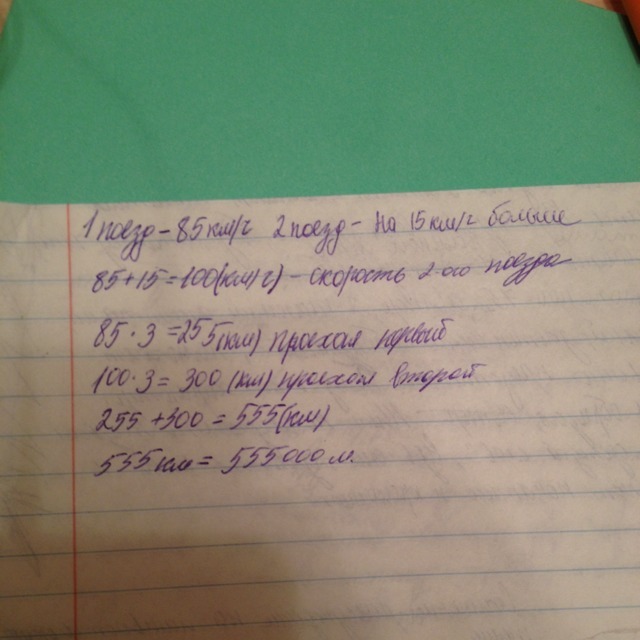 1 поезд - 85 км/ч 2 поезд - на 15 км/ч больше
85+15=100(км/ч) - скорость 2-ого поезда
85·3=255(км) проехал первый
100·3=300 (км) проехал второй
255+300=555(км)
555км=555000м.